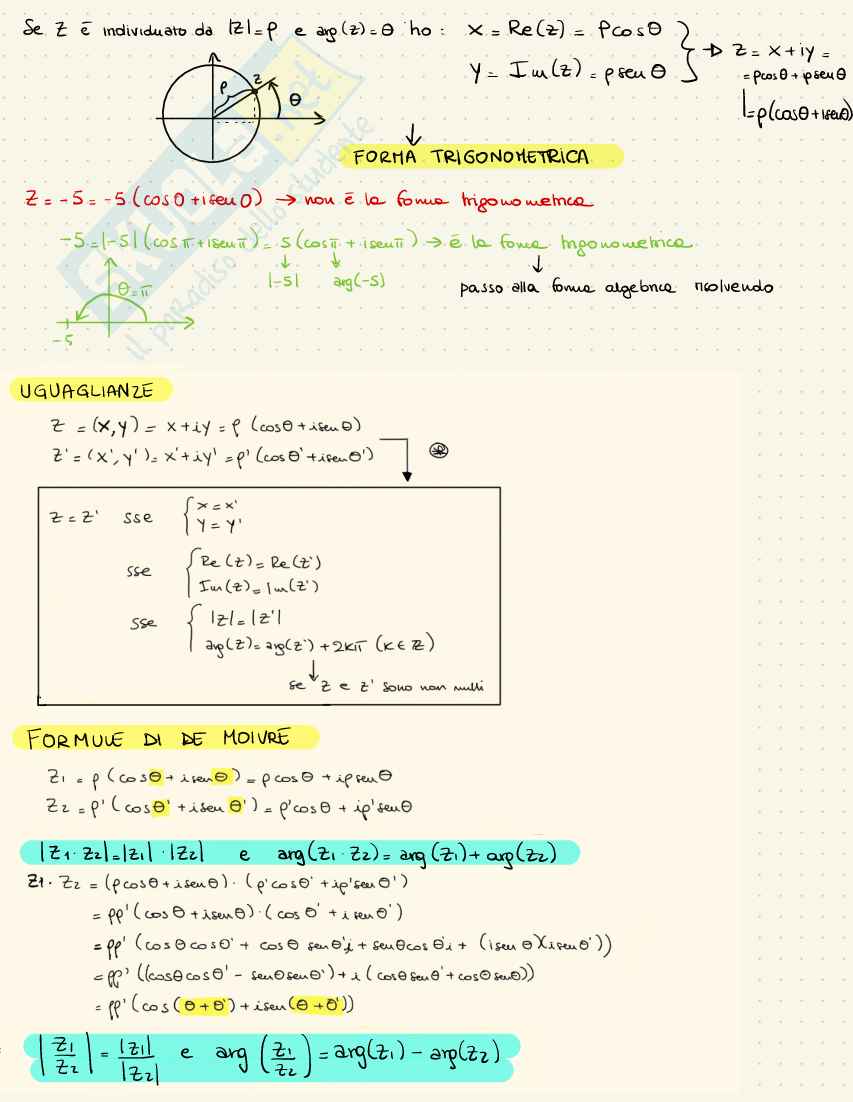 Se z è individuato da |z|=ρ e arg(z)=θ ho: x = Re(z) = ρcosθ
y = Im(z) = ρsenθ
→ z = x+iy =
= ρcosθ + ρsenθ
= ρ(cosθ+isenθ)
ρ z θ
↓
FORMA TRIGONOMETRICA
z = -5 = -5 (cos0+isen0) → non è la forma trigonometrica
-5=|-5|(cosπ+isenπ) = 5(cosπ+isenπ) → è la forma trigonometrica
|-5| arg(-5)
passo alla forma algebrica risolvendo
θ=π
-5
SKUOLA.net
il paradiso dello studente
UGUAGLIANZE
z = (x,y) = x+iy = ρ (cosθ+isenθ)
z' = (x',y') = x'+iy' = ρ'(cosθ'+isenθ') ⊛
z = z' sse { x = x'
y = y'
sse { Re(z) = Re(z')
Im(z) = Im(z')
sse { |z| = |z'|
arg(z) = arg(z') + 2kπ (k∈ℤ)
se z e z' sono non nulli
FORMULE DI DE MOIVRE
z1 = ρ (cosθ + isenθ) = ρcosθ + iρsenθ
z2 = ρ' (cosθ' + isenθ') = ρ'cosθ + iρ'senθ
|z1·z2|=|z1|·|z2| e arg(z1·z2) = arg(z1)+arg(z2)
z1·z2 = (ρcosθ+isenθ)·(ρ'cosθ'+iρ'senθ')
= ρρ'(cosθ+isenθ)·(cosθ'+isenθ')
= ρρ'(cosθcosθ' + cosθ senθ'i + senθcosθ'i + (isenθ)(isenθ'))
= ρρ'((cosθcosθ' - senθsenθ')+i(cosθsenθ'+cosθsenθ))
= ρρ'(cos(θ+θ')+isen(θ+θ'))
|z1/z2| = |z1|/|z2| e arg (z1/z2) = arg(z1) - arg(z2)